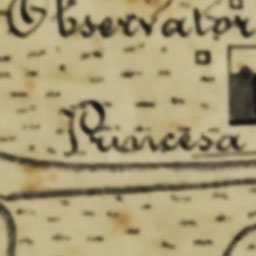 Observator
Princesa